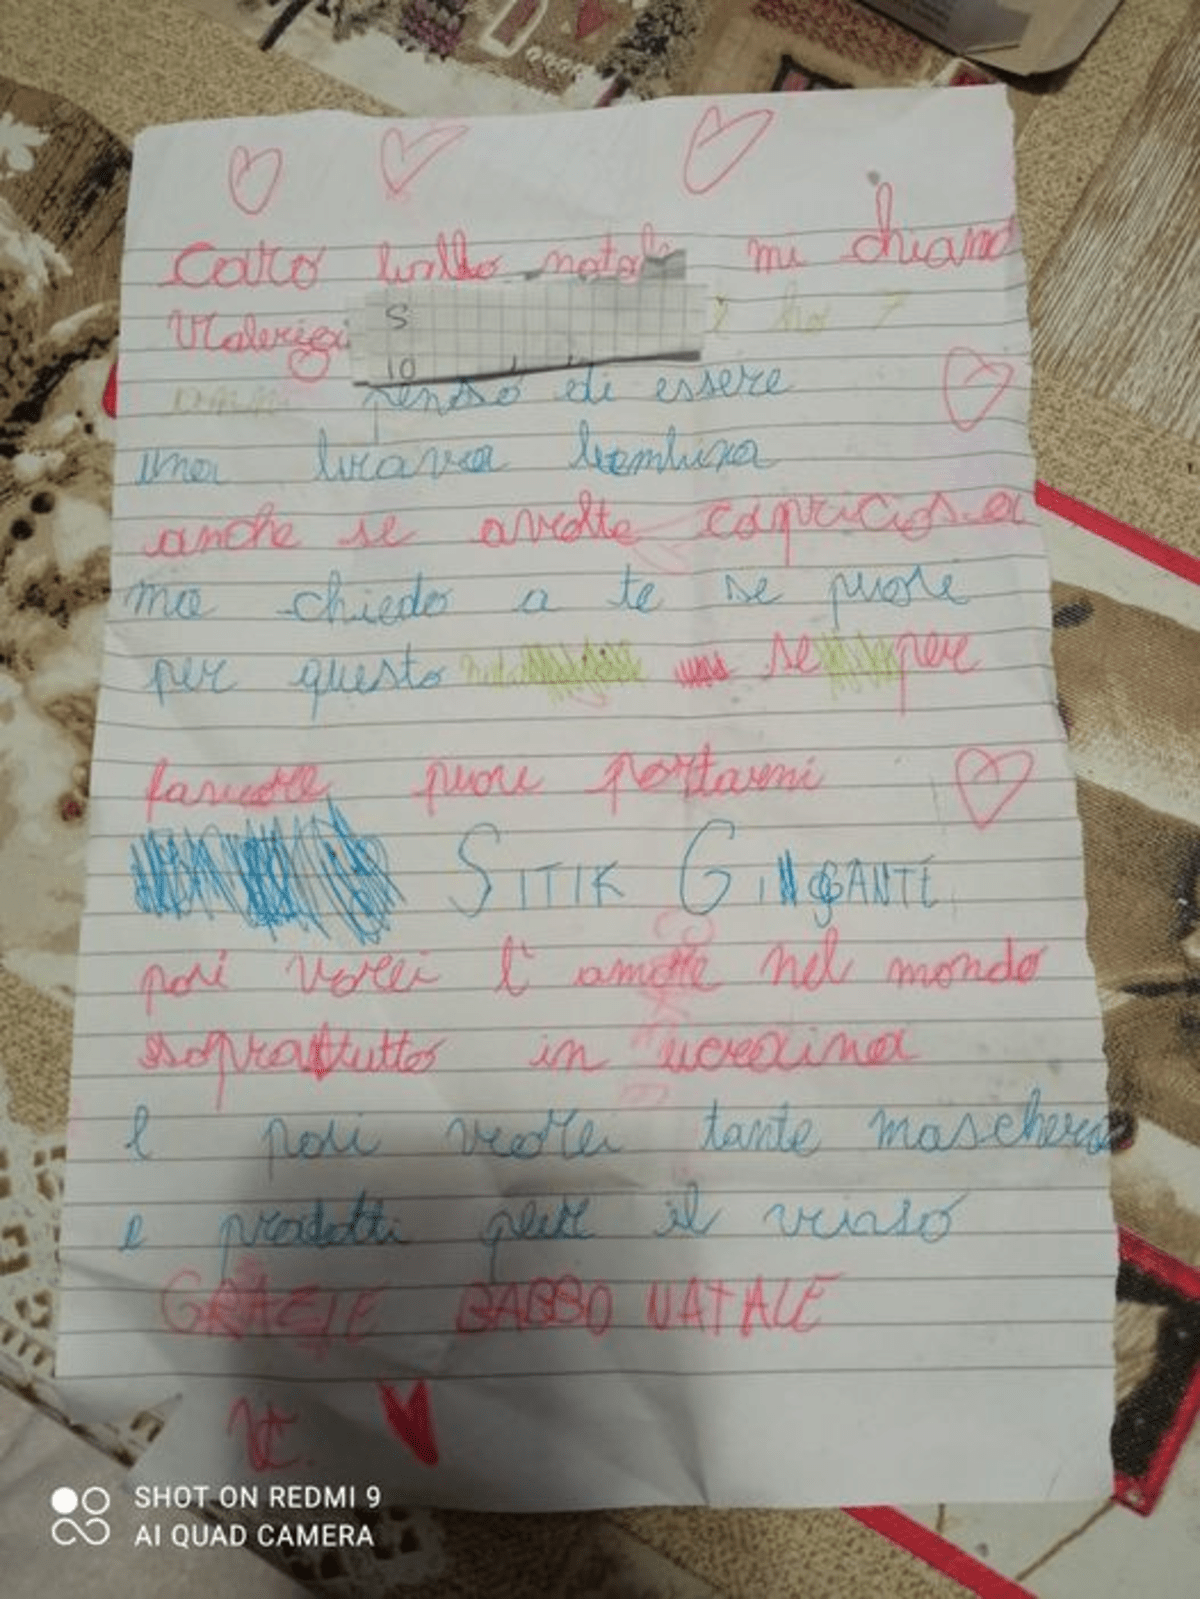 Caro babbo natale mi chiamo
Valeria
S
10
e ho 7
anni penso di essere
una brava bambina
anche se avolte capricciosa
ma chiedo a te se puoi
per questo se per
favore puoi portarmi
SITIK GINGANTE
poi vorei l'amore nel mondo
soprattutto in ucraina
e poi vorei tante maschere
e prodotti per il viaso
GRAZIE BABBO NATALE
V.C.
SHOT ON REDMI 9
AI QUAD CAMERA